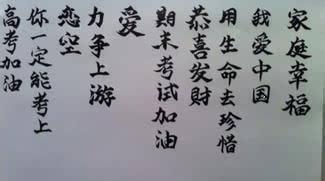 家庭幸福
我爱中国
用生命去珍惜
恭喜发财
期末考试加油
爱
力争上游
恋空
你一定能考上
高考加油